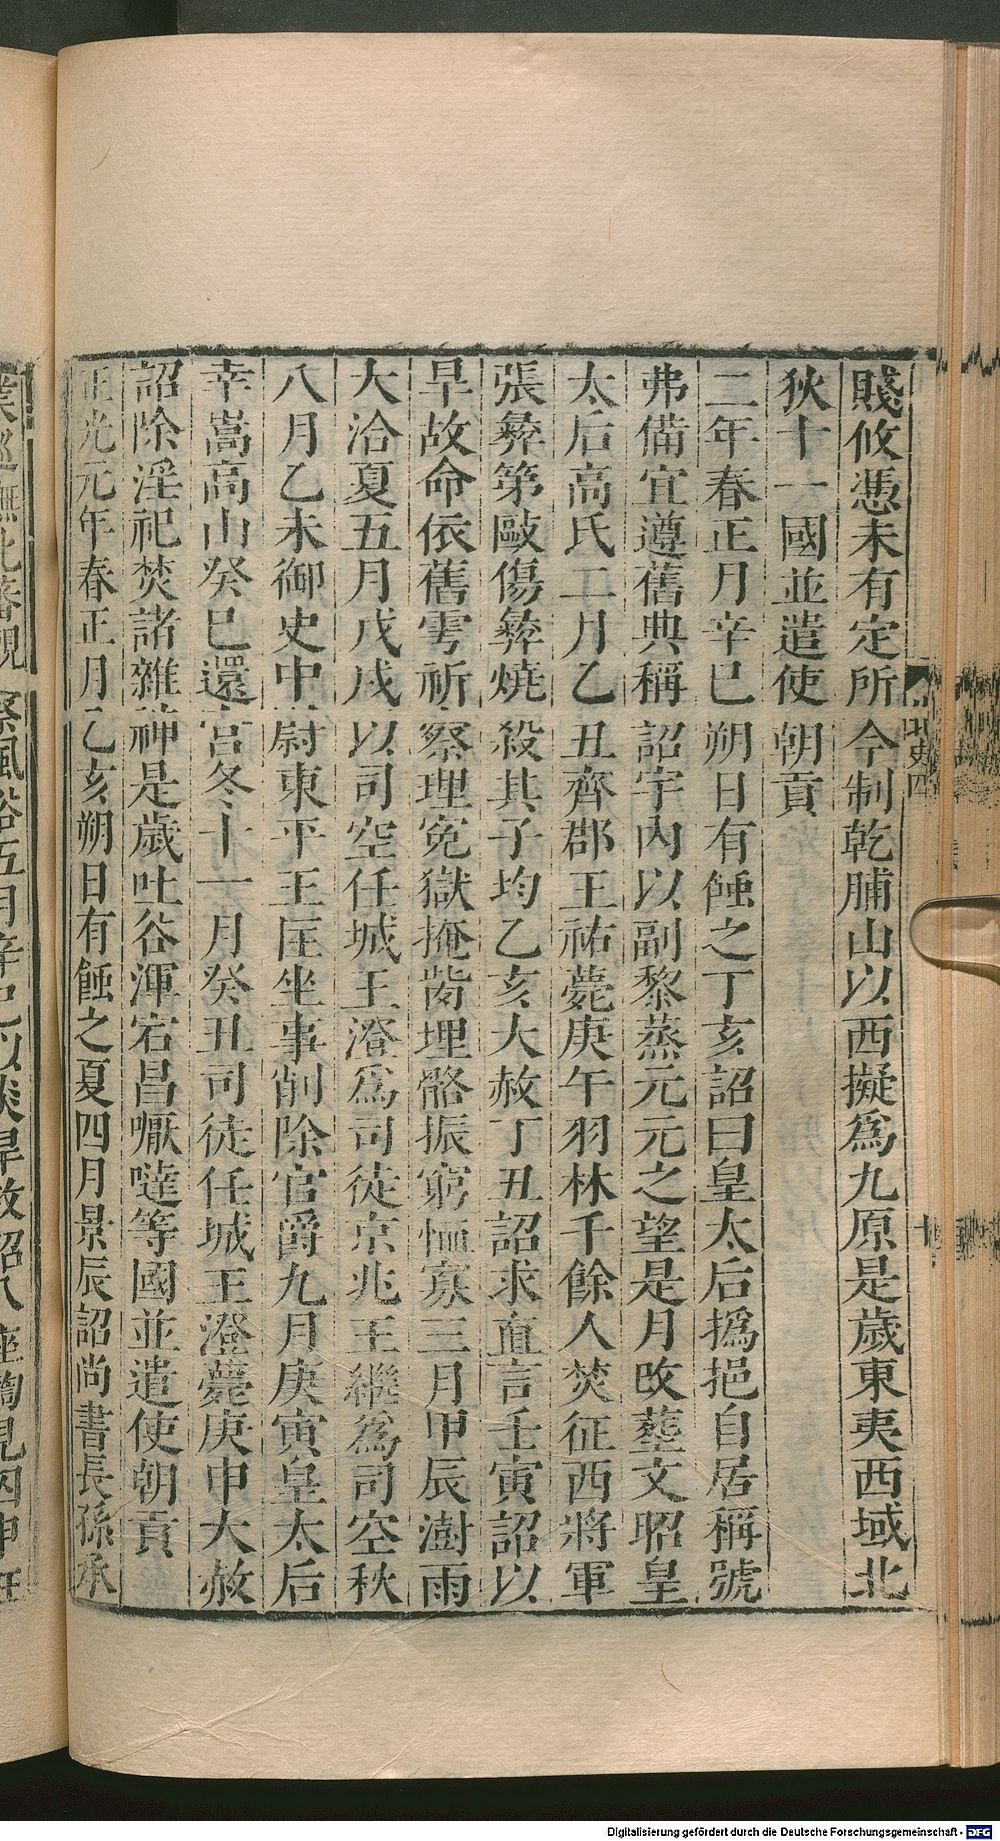 賤攸憑未有定所今制乾脯山以西擬爲九原是歲東夷西域北
狄十一國並遣使朝貢
二年春正月辛巳朔日有蝕之丁亥詔曰皇太后撝挹自居稱號
弗備宜遵舊典稱詔宇內以副黎蒸元元之望是月改葬文昭皇
太后高氏二月乙丑齊郡王祐薨庚午羽林千餘人焚征西將軍
張彝第毆傷彝燒殺其子均乙亥大赦丁丑詔求直言壬寅詔以
旱故命依舊雩祈察理寃獄掩胔埋骼振窮恤寡三月甲辰澍雨
大洽夏五月戊戌以司空任城王澄爲司徒京兆王繼爲司空秋
八月乙未御史中尉東平王匡坐事削除官爵九月庚寅皇太后
幸嵩高山癸巳還宮冬十一月癸丑司徒任城王澄薨庚申大赦
詔除淫祀焚諸雜神是歲吐谷渾宕昌嚈噠等國並遣使朝貢
正光元年春正月乙亥朔日有蝕之夏四月景辰詔尚書長孫承
業巡撫北蕃觀察風俗五月辛巳以炎旱故詔八座鞫見囚申枉
北史四
十
Digitalisierung gefördert durch die Deutsche Forschungsgemeinschaft - DFG